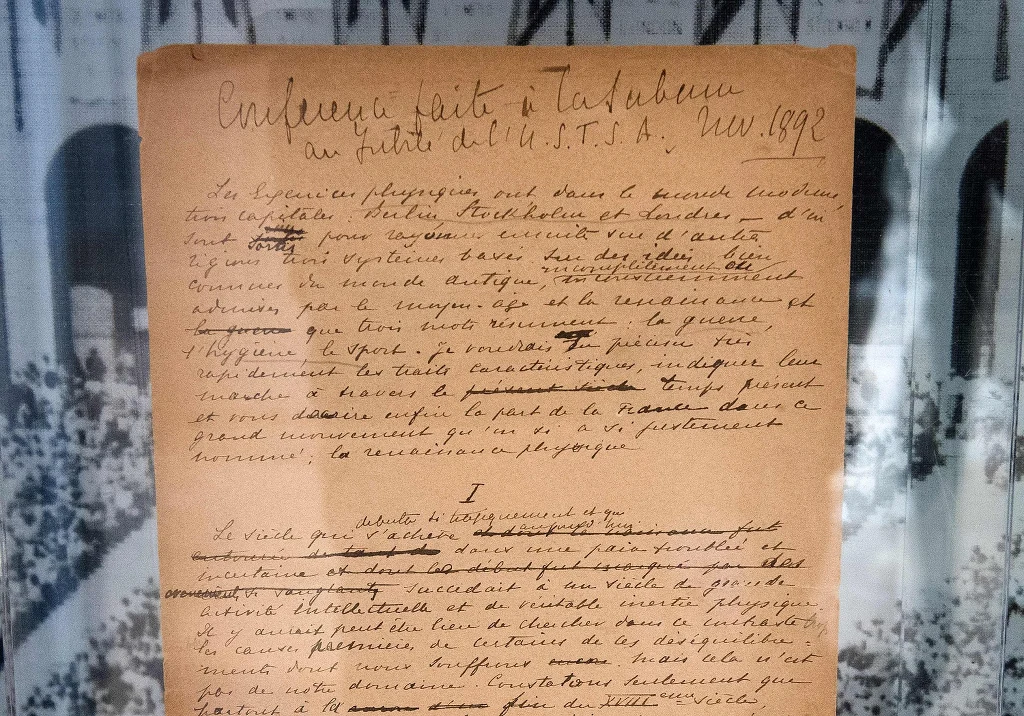 Conférence faite à la Sorbonne
au Jubilé de l'U.S.F.S.A. Nov. 1892
Les Exercices physiques ont dans le monde moderne
trois capitales : Berlin Stockholm et Londres — d'où
sont pour rayonner ensuite sur d'autres
régions trois systèmes basés sur des idées bien
incomplètement
connues du monde antique,
admises par le moyen-age et la renaissance et
la guerre que trois mots résument : la guerre,
l'hygiène, le sport. Je voudrais préciser très
rapidement les traits caractéristiques, indiquer leur
marche à travers le présent siècle temps présent
et vous dire enfin la part de la France dans ce
grand mouvement qu'on a si justement
nommé : la renaissance physique
I
débuta si tragiquement et qui
Le siècle qui s'achève et dont la naissance fut
dans une paix troublée et
incertaine et dont le début fut marqué par des
évènements si sanglants succédait à un siècle de grande
activité intellectuelle et de véritable inertie physique.
Il y aurait peut être lieu de chercher dans ce contraste
les causes premières de certains de ces déséquilibre-
ments dont nous souffrons. Mais cela n'est
pas de notre domaine. Constatons seulement que
partout à la fin du XVIIIeme siècle,